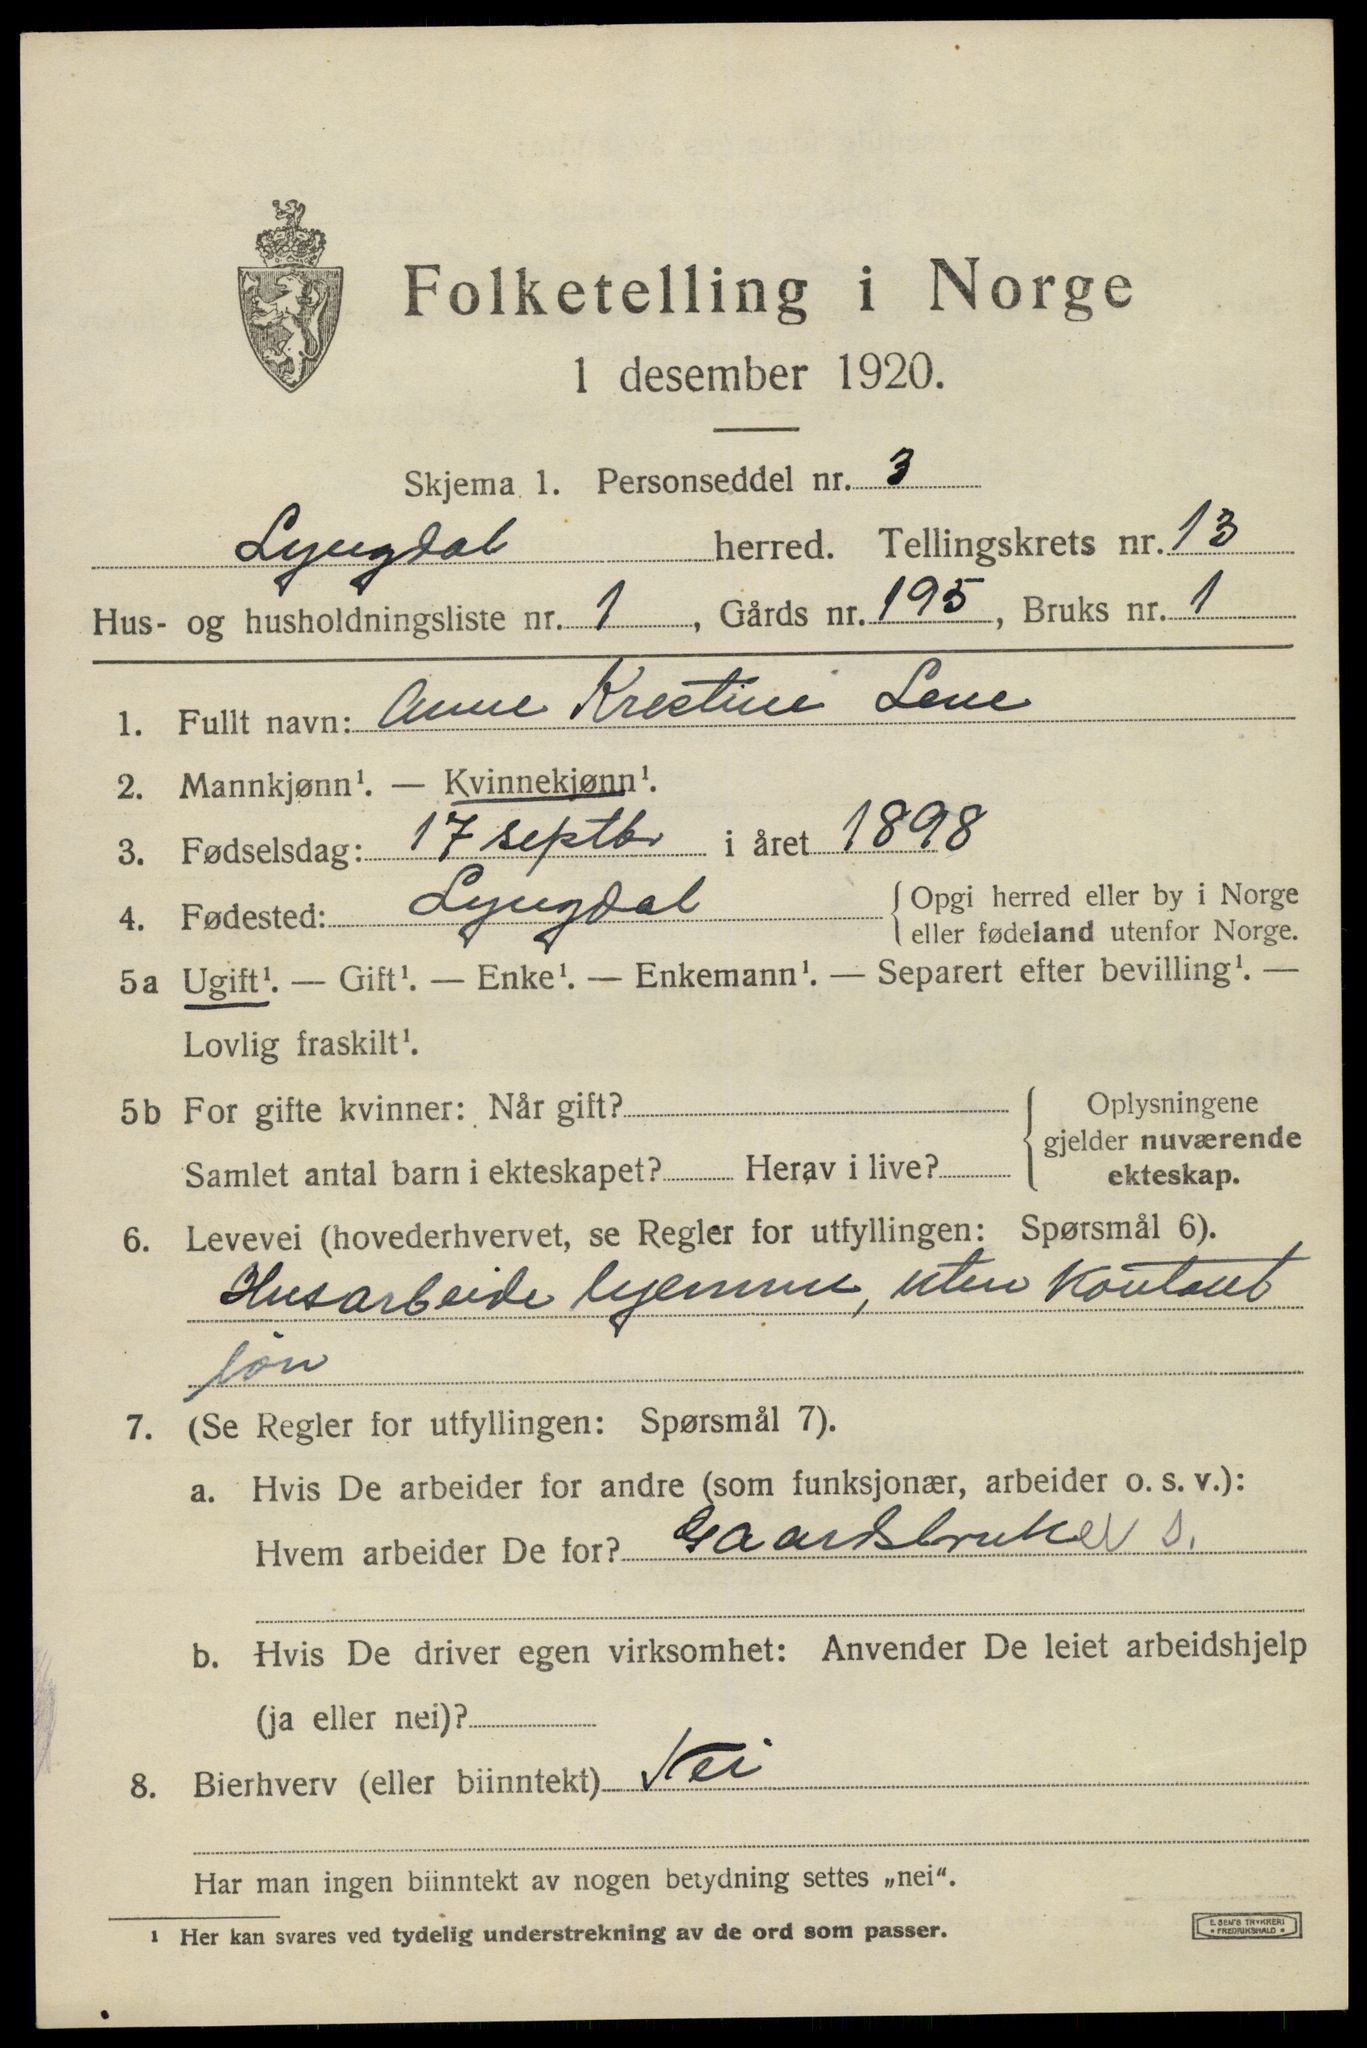 Folketelling i Norge
1 desember 1920.
Skjema 1. Personseddel nr. 3
Lyngdal herred. Tellingskrets nr. 13
Hus- og husholdningsliste nr. 1, Gårds nr. 195, Bruks nr. 1
1. Fullt navn: Anne Krestine Lene
2. Mannkjønn¹. — Kvinnekjønn¹.
3. Fødselsdag: 17 septbr i året 1898
4. Fødested: Lyngdal { Opgi herred eller by i Norge
eller fødeland utenfor Norge.
5a Ugift¹. — Gift¹. — Enke¹. — Enkemann¹. — Separert efter bevilling¹. —
Lovlig fraskilt¹.
5b For gifte kvinner: Når gift? { Oplysningene
gjelder nuværende
Samlet antal barn i ekteskapet? Herav i live? ekteskap.
6. Levevei (hovederhvervet, se Regler for utfyllingen: Spørsmål 6).
Husarbeide hjemme, uten Kontant
løn
7. (Se Regler for utfyllingen: Spørsmål 7).
a. Hvis De arbeider for andre (som funksjonær, arbeider o. s. v.):
Hvem arbeider De for? Gaardsbruker s.
b. Hvis De driver egen virksomhet: Anvender De leiet arbeidshjelp
(ja eller nei)?
8. Bierhverv (eller biinntekt) Nei
Har man ingen biinntekt av nogen betydning settes „nei“.
¹ Her kan svares ved tydelig understrekning av de ord som passer.
E. SEM'S TRYKKERI
* FREDRIKSHALD *